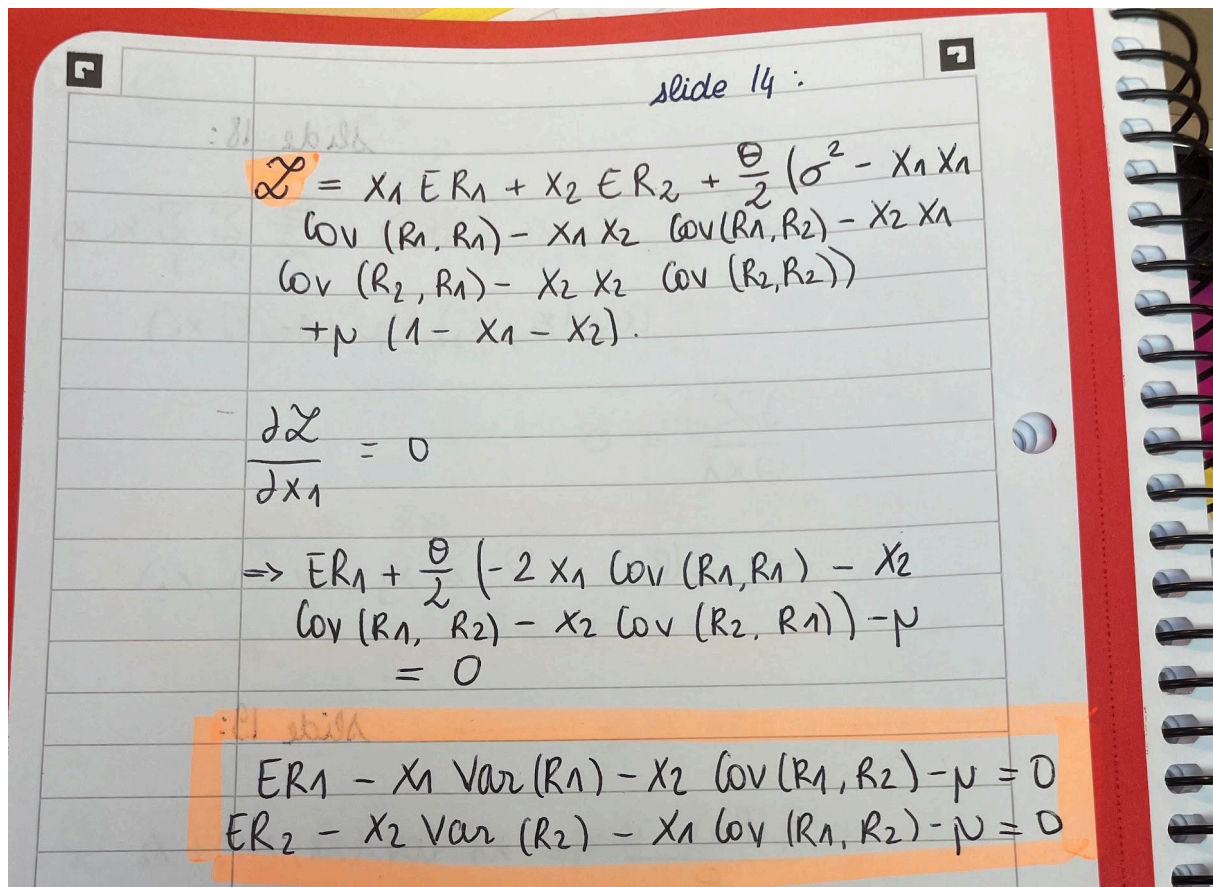 slide 14 :
ℒ = X1 ER1 + X2 ER2 + θ/2 (σ² - X1 X1
Cov (R1, R1) - X1 X2 Cov(R1, R2) - X2 X1
Cov (R2, R1) - X2 X2 Cov (R2, R2))
+μ (1 - X1 - X2).
∂ℒ/∂X1 = 0
=> ER1 + θ/2 (-2 X1 Cov (R1, R1) - X2
Cov (R1, R2) - X2 Cov (R2, R1)) - μ
= 0
slide 19:
ER1 - X1 Var(R1) - X2 Cov(R1, R2) - μ = 0
ER2 - X2 Var (R2) - X1 Cov (R1, R2) - μ = 0